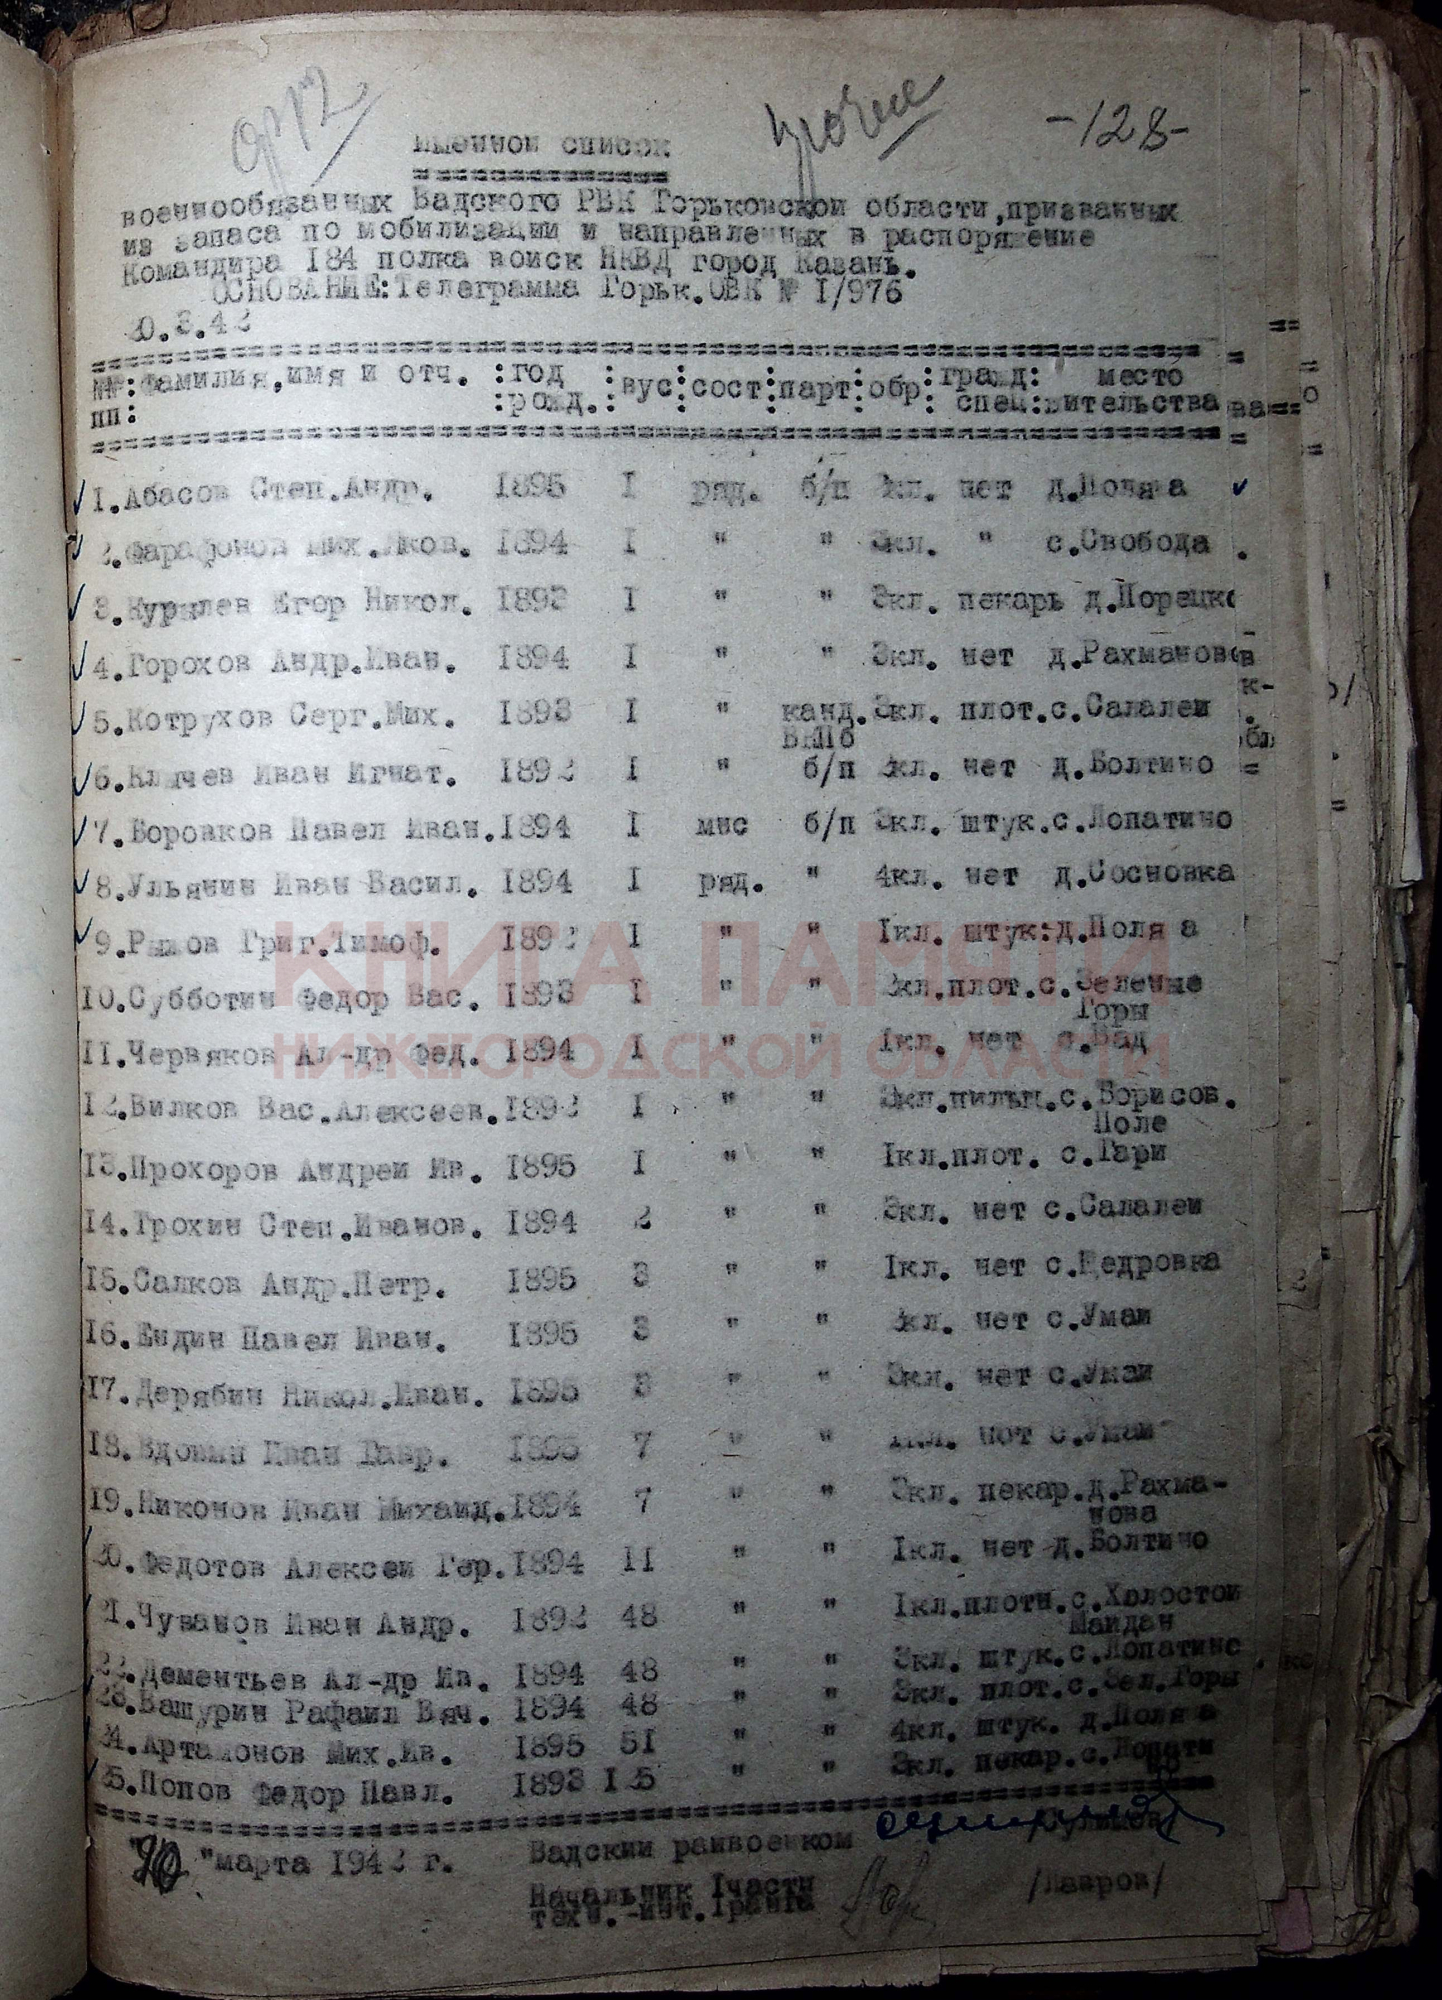 -128-
именной список
военнообязанных Вадского РВК Горьковской области,призванных
из запаса по мобилизации и направленных в распоряжение
Командира 184 полка войск НКВД город Казань.
ОСНОВАНИЕ:Телеграмма Горьк.ОВК № I/976
20.3.42
№№:фамилия,имя и отч. :год :вус:сост:парт:обр:гражд: место
пп: :рожд.: спец:жительства
I.Абасов Степ.Андр. 1895 I ряд. б/п кл. нет д.Поляна
2.Фарафонов Мих.Яков. 1894 I " " 3кл. " с.Свобода
3.Курылев Егор Никол. 1893 I " " 3кл. пекарь д.Порецко
4.Горохов Андр.Иван. 1894 I " " 3кл. нет д.Рахманово
5.Котрухов Серг.Мих. 1893 I " канд. 3кл. плот.с.Салалеи
ВКПб
6.Клычев Иван Игнат. 1892 I " б/п кл. нет д.Болтино
7.Боровков Павел Иван.1894 I мнс б/п 3кл. штук.с.Лопатино
8.Ульянин Иван Васил. 1894 I ряд. " 4кл. нет д.Сосновка
9.Рыжов Григ.Тимоф. 1892 I " " Iкл. штук:д.Поля а
10.Субботин Федор Вас. 1893 I " " 3кл.плот.с.Зеленые
Горы
II.Червяков Ал-др Фед. 1894 I " " Iкл. нет с.Вад
12.Вилков Вас.Алексеев.1892 I " " 3кл.пильщ.с.Борисов.
Поле
13.Прохоров Андрей Ив. 1895 I " " Iкл.плот. с.Гари
14.Трохин Степ.Иванов. 1894 2 " " 3кл. нет с.Салалеи
15.Салков Андр.Петр. 1895 3 " " Iкл. нет с.Щедровка
16.Ендин Павел Иван. 1895 3 " " кл. нет с.Умай
17.Дерябин Никол.Иван. 1895 3 " " 3кл. нет с.Умай
18.Вдовин Иван Гавр. 1895 7 " " Iкл. нет с.Умай
19.Никонов Иван Михаил.1894 7 " " 3кл. пекар.д.Рахма-
нова
20.Федотов Алексей Гер.1894 II " " Iкл. нет д.Болтино
21.Чуванов Иван Андр. 1892 48 " " Iкл.плотн.с.Холостой
Майдан
22.Дементьев Ал-др Ив. 1894 48 " " 3кл. штук.с.Лопатино
23.Вашурин Рафаил Вяч. 1894 48 " " 3кл. плот.с.Зел.Горы
24.Артамонов Мих.Ив. 1895 51 " " 4кл. штук. д.Поля а
25.Попов Федор Павл. 1893 125 " " 3кл. пекар.с.Лопати
но
"20"марта 1942 г. Вадский райвоенком
Начальник Iчасти
техн.-инт.Iранга /Лавров/
КНИГА ПАМЯТИ
НИЖЕГОРОДСКОЙ ОБЛАСТИ